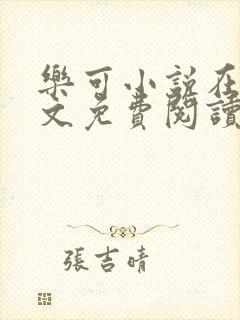 樂可小說在
文免費閱讀
張吉晴